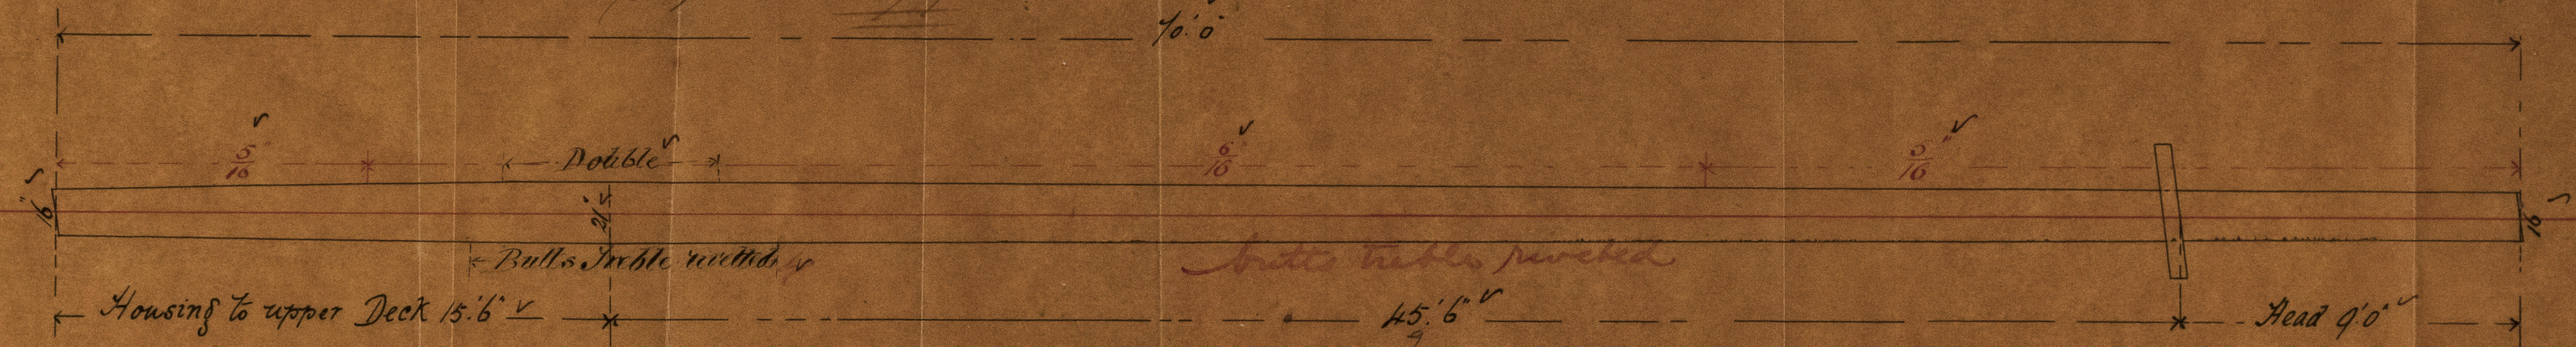 70'.0"
5/16"
Double
6/16"
5/16"
16"
21"
16"
Butts Treble rivetted
butts treble riveted
Housing to upper Deck 15'.6"
45'.6"
Head 9'.0"